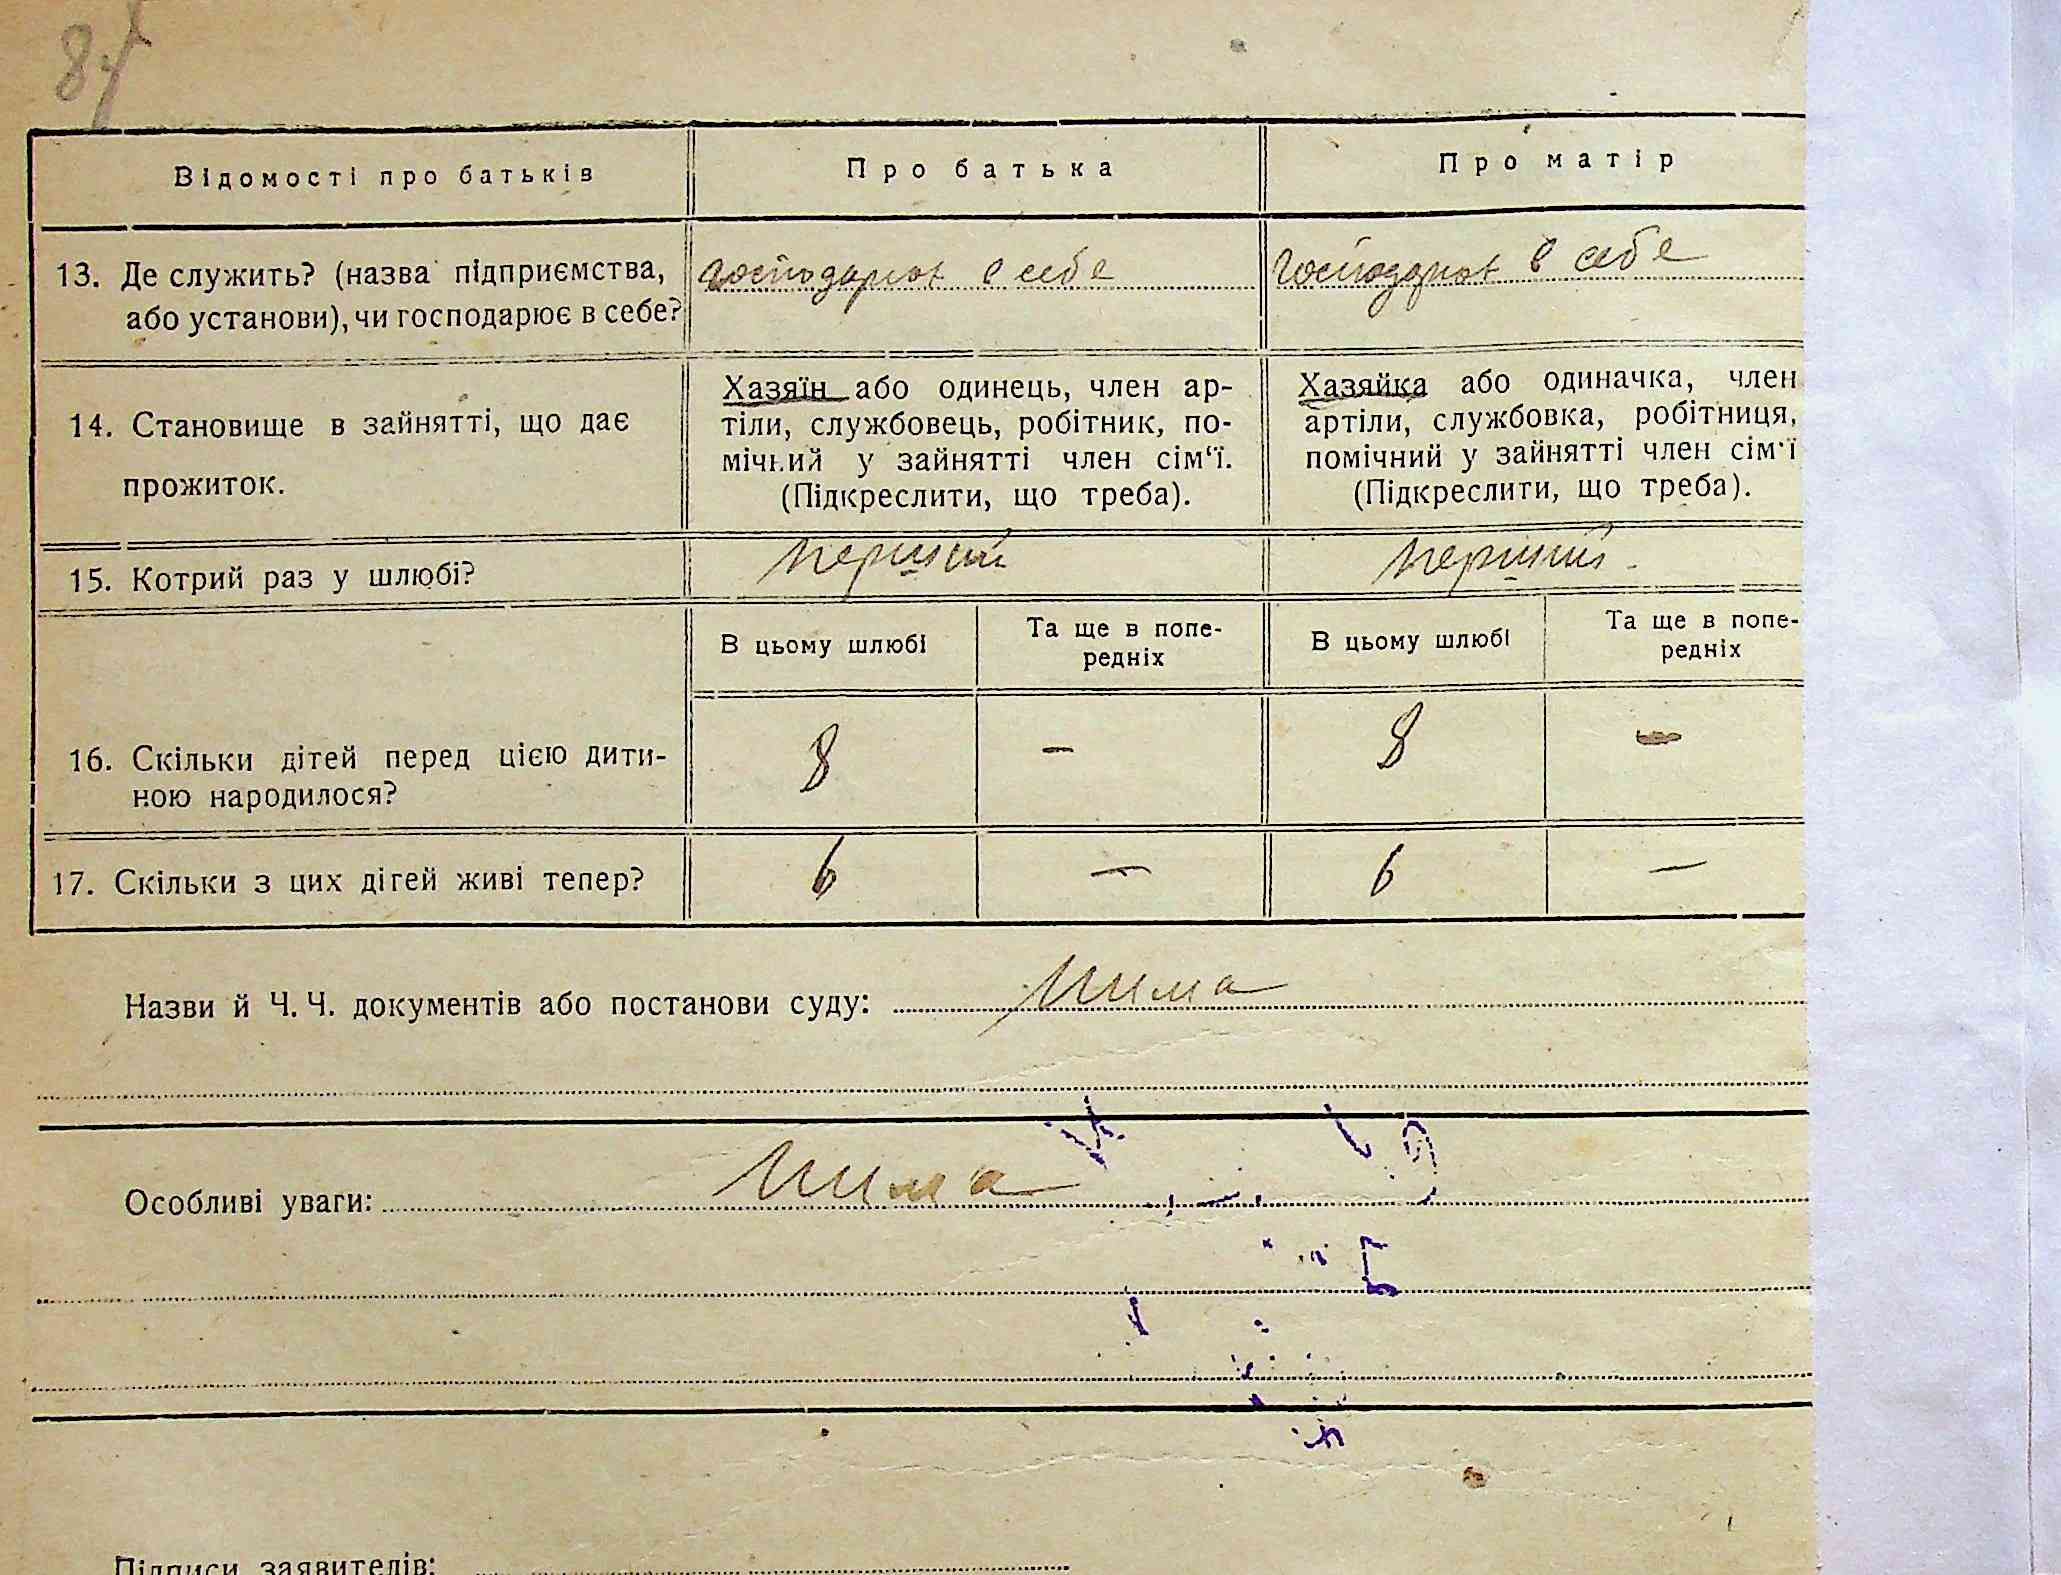 Відомості про батьків Про батька Про матір
13. Де служить? (назва підприємства, господарює в себе господарює в себе
або установи), чи господарює в себе?
Хазяїн або одинець, член ар- Хазяйка або одиначка, член
14. Становище в зайнятті, що дає тіли, службовець, робітник, по- артіли, службовка, робітниця,
мічний у зайнятті член сім'ї. помічний у зайнятті член сім'ї
прожиток. (Підкреслити, що треба). (Підкреслити, що треба).
15. Котрий раз у шлюбі? перший перший
В цьому шлюбі Та ще в попе- В цьому шлюбі Та ще в попе-
редніх редніх
16. Скільки дітей перед цією дити- 8 – 8 –
ною народилося?
17. Скільки з цих дігей живі тепер? 6 – 6 –
Назви й Ч. Ч. документів або постанови суду: Нима
Особливі уваги: Нима
Підписи заявителів: